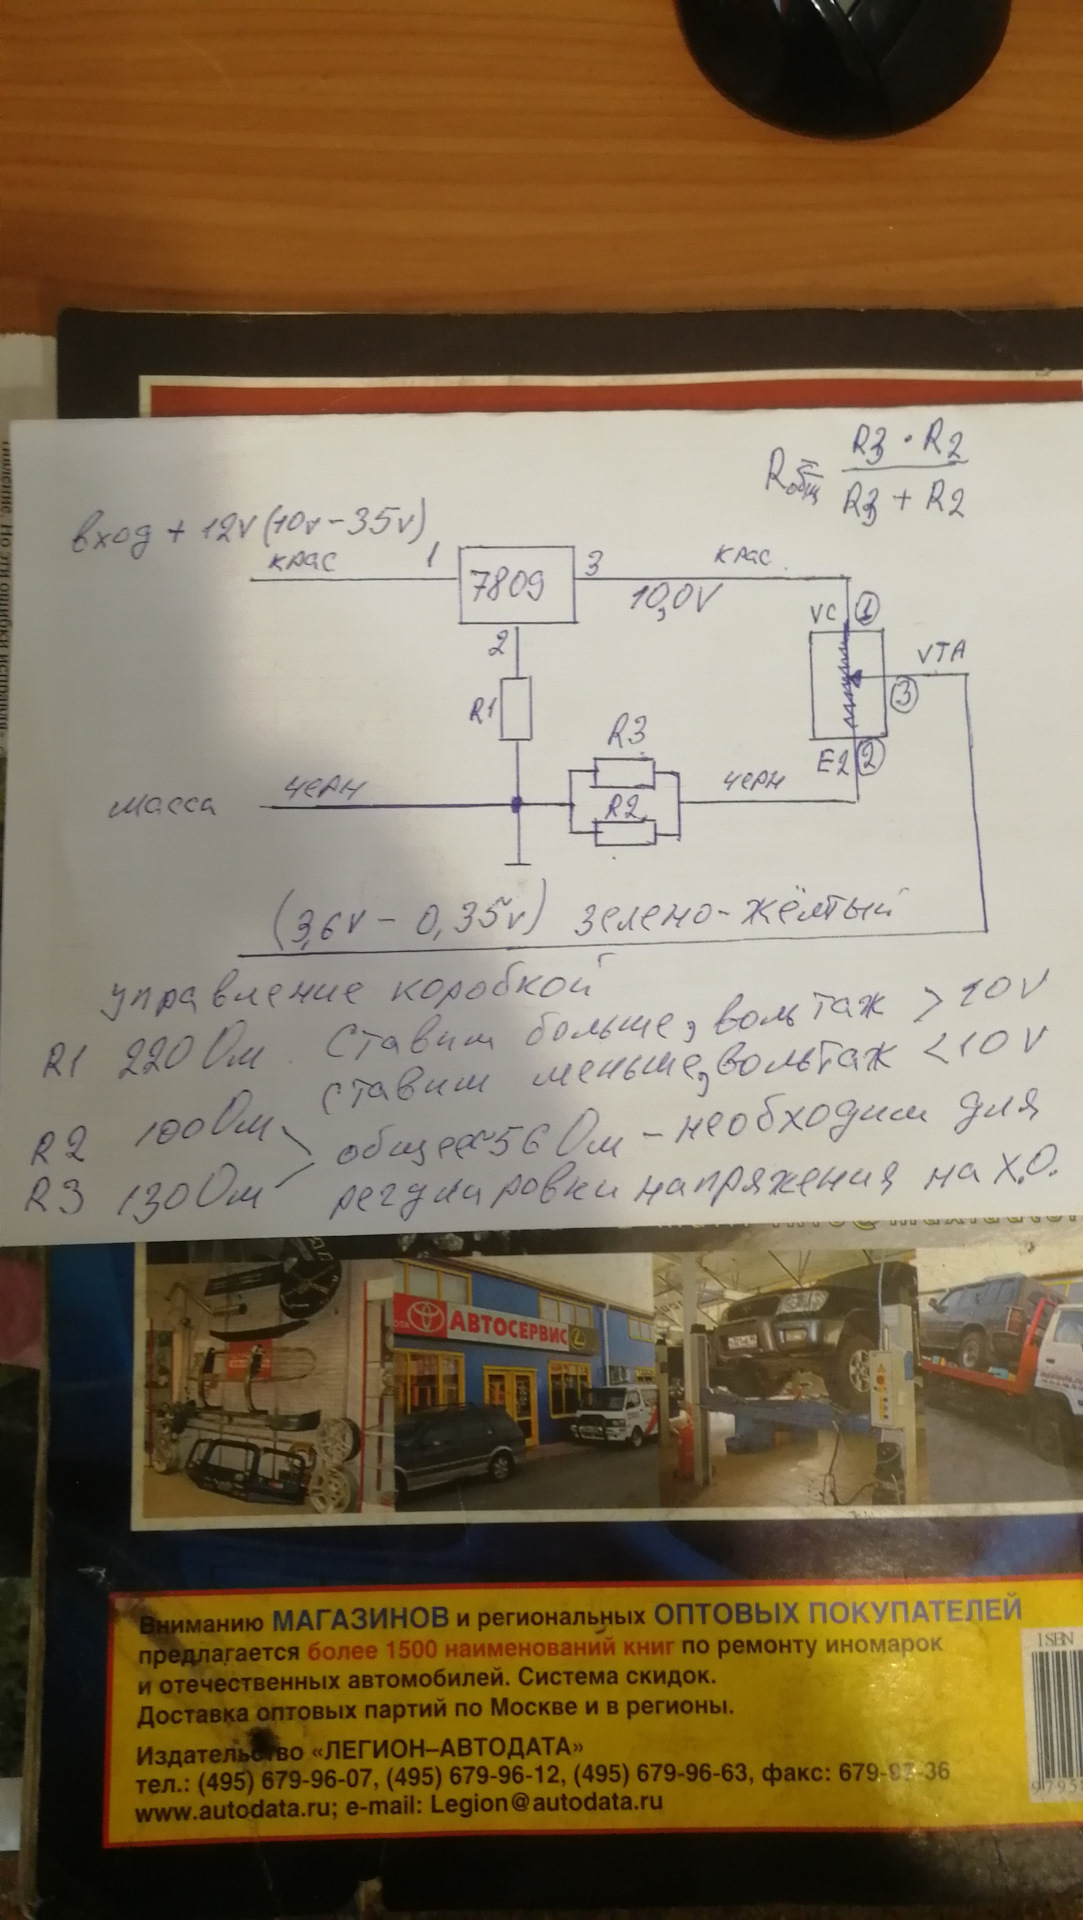 Rобщ = R3 · R2
R3 + R2
вход + 12v (10v - 35v)
крас
1
7809
3
крас.
10,0V
VC
1
2
R1
VTA
3
R3
E2
2
R2
масса
черн
черн
(3,6v - 0,35v) зелено-жёлтый
управление коробкой
R1 220 Ом. Ставим больше, вольтаж > 10V
ставим меньше, вольтаж < 10V
R2 100 Ом
общее ~ 56 Ом - необходим для
R3 130 Ом
регулировки напряжения на Х.О.
АВТОСЕРВИС
Вниманию МАГАЗИНОВ и региональных ОПТОВЫХ ПОКУПАТЕЛЕЙ
предлагается более 1500 наименований книг по ремонту иномарок
и отечественных автомобилей. Система скидок.
Доставка оптовых партий по Москве и в регионы.
Издательство «ЛЕГИОН–АВТОДАТА»
тел.: (495) 679-96-07, (495) 679-96-12, (495) 679-96-63, факс:
www.autodata.ru; e-mail: Legion@autodata.ru
ISBN